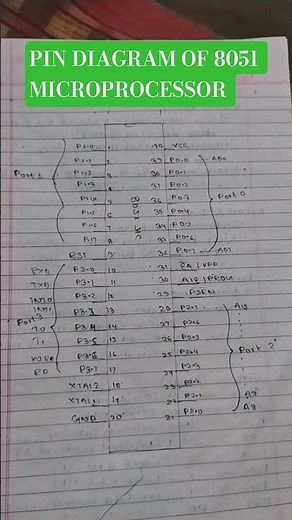 PIN DIAGRAM OF 8051
MICROPROCESSOR
P1.0 1 40 VCC
P1.1 2 39 P0.0 AD0
P1.2 3 38 P0.1
P1.3 4 37 P0.2
Port 1
P1.4 5 36 P0.3 Port 0
P1.5 6 35 P0.4
P1.6 7 34 P0.5
P1.7 8 33 P0.6
RST 9 32 P0.7 AD7
RXD P3.0 10 31 EA / VPP
TXD P3.1 11 30 ALE / PROG
INT0 P3.2 12 29 PSEN
INT1 P3.3 13 28 P2.7 A15
Port 3
T0 P3.4 14 27 P2.6
T1 P3.5 15 26 P2.5
P3.6 16 25 P2.4 Port 2
RD P3.7 17 24 P2.3
XTAL2 18 23 P2.2
XTAL1 19 22 P2.1 A9
GND 20 21 P2.0 A8
8051 MC